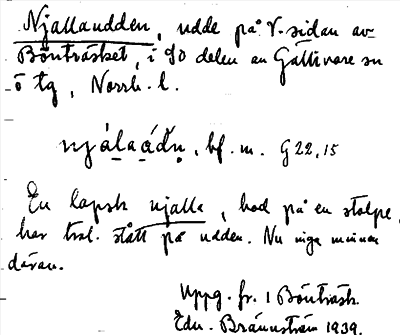 Njallaudden, udde på V. sidan av
Bönträsket, i SO delen av Gällivare sn
ö tg, Norrb. l.
njálaád̆n, bf. m. G 22,15
En lapsk njalla, bod på en stolpe,
har trol. stått på udden. Nu inga minnen
därav.
Uppg. fr. i Bönträsk.
Edv. Brännström 1939.